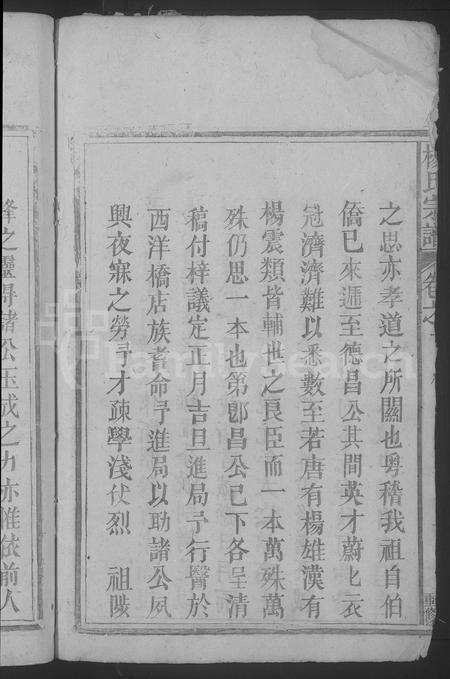 楊氏宗譜
卷之
之思亦孝道之所關也粵稽我祖自伯
僑已來遞至德昌公其間英才蔚ヒ衣
冠濟濟難以悉數至若唐有楊雄漢有
楊震類皆輔世之良臣而一本萬殊萬
殊仍思一本也第卽昌公已下各呈清
稿付梓議定正月吉旦進局予行醫於
西洋橋店族耆命予進局以助諸公夙
興夜寐之勞予才疎學淺伏烈 祖陟
之靈得諸公玉成之力亦惟依前人
FamilySearch